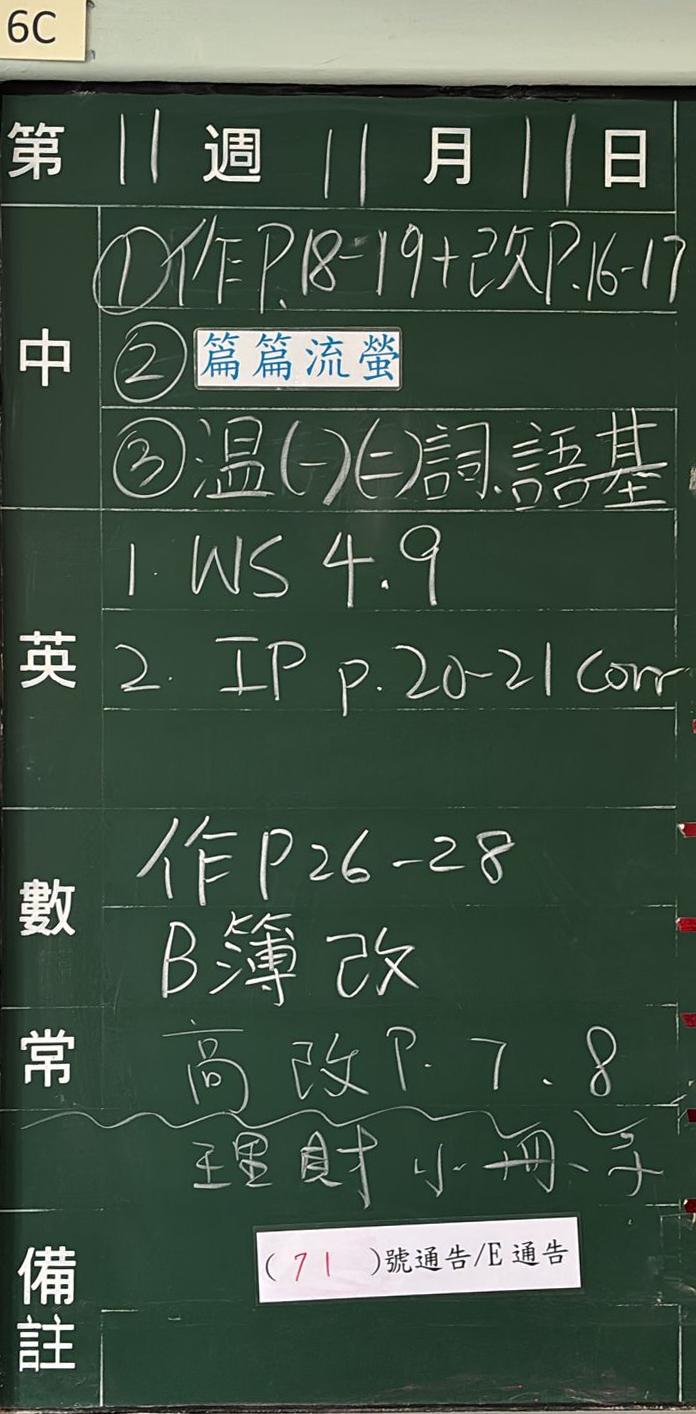 6C
第 11 週 11 月 11 日
中
①作P.18-19+改P.16-17
②篇篇流螢
③温(一)(二)詞、語基
英
1. WS 4.9
2. IP p.20-21 corr
數
作P26-28
B簿改
常
高 改P. 7、8
理財小冊子
備註
(71)號通告/E通告